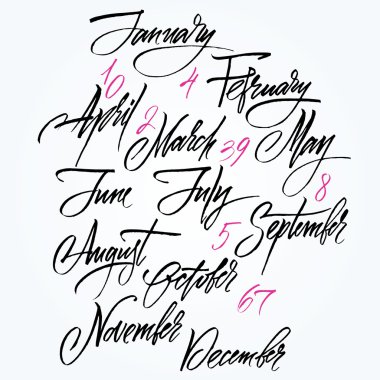 January
10 4 February
April 2 March 39 May
June July 8
August 5 September
October 67
November
December